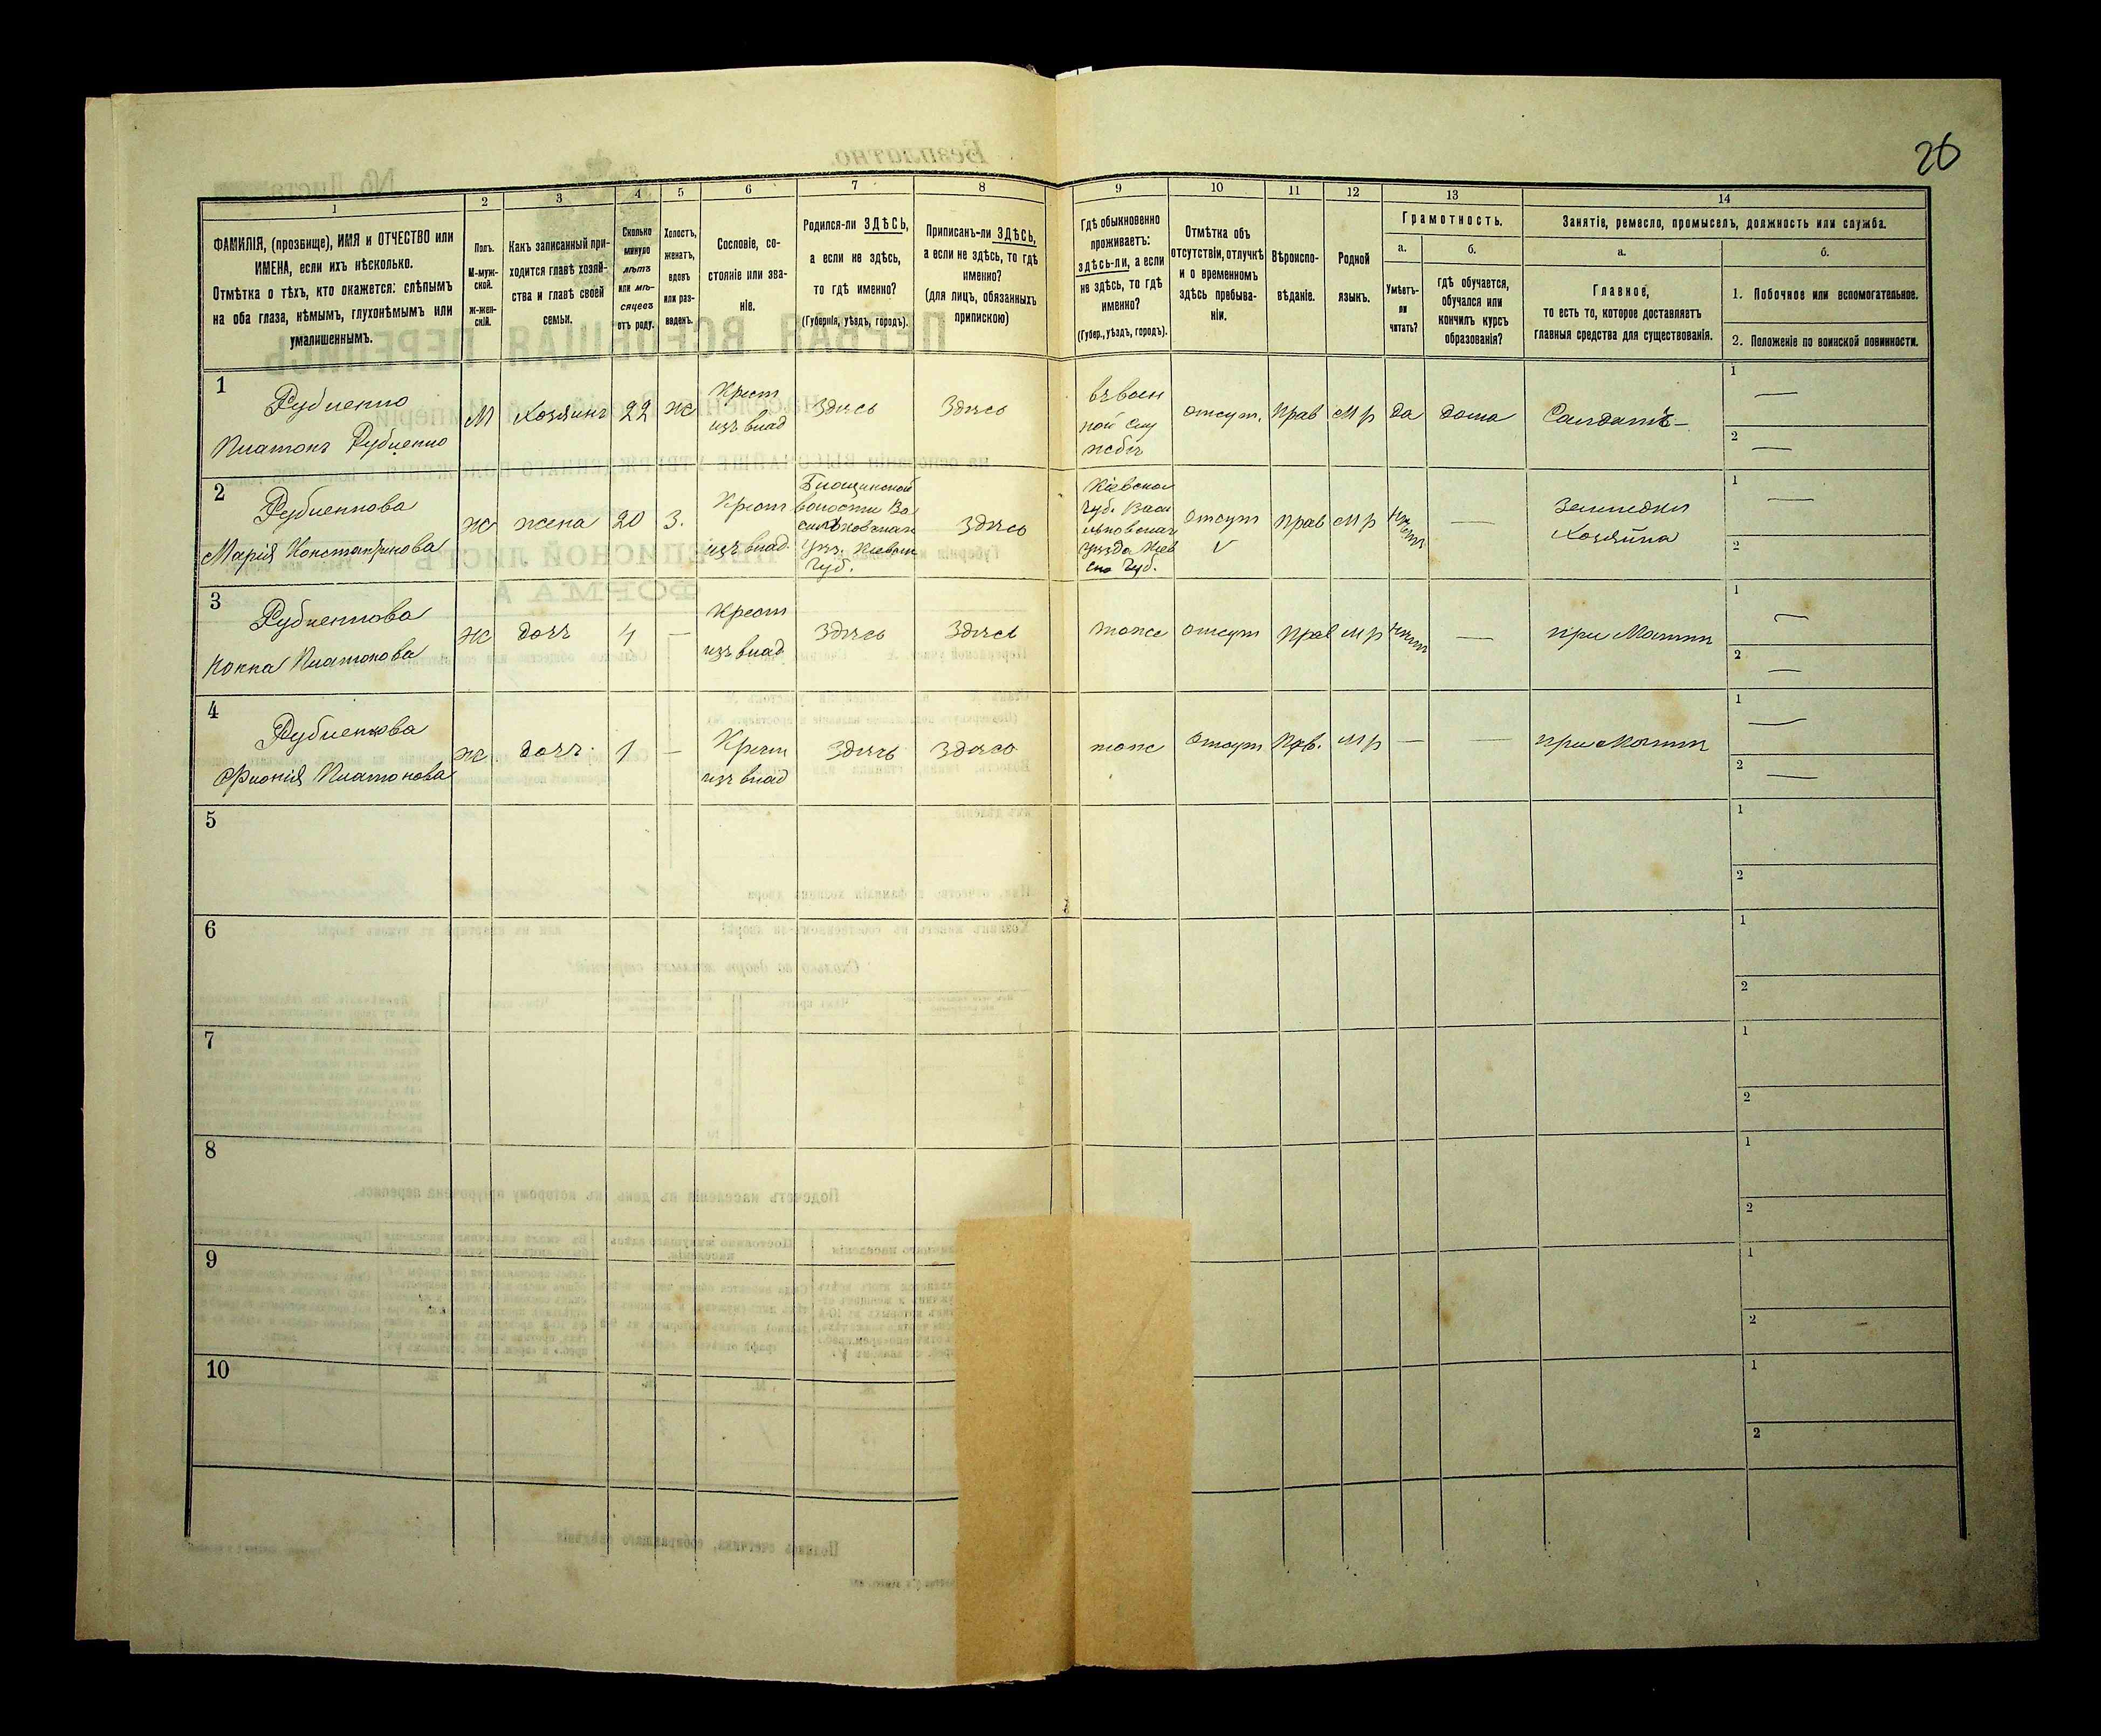 26
1
2
3
4
5
6
7
8
9
10
11
12
13
14
ФАМИЛІЯ, (прозвище), ИМЯ и ОТЧЕСТВО или
ИМЕНА, если ихъ нѣсколько.
Отмѣтка о тѣхъ, кто окажется: слѣпымъ
на оба глаза, нѣмымъ, глухонѣмымъ или
умалишеннымъ.
Полъ.
М-муж-
ской.
Ж-жен-
скій.
Какъ записанный при-
ходится главѣ хозяй-
ства и главѣ своей
семьи.
Сколько
минуло
лѣтъ
или мѣ-
сяцевъ
отъ роду.
Холостъ,
женатъ,
вдовъ
или раз-
веденъ.
Сословіе, со-
стояніе или зва-
ніе.
Родился-ли ЗДѢСЬ,
а если не здѣсь,
то гдѣ именно?
(Губернія, уѣздъ, городъ).
Приписанъ-ли ЗДѢСЬ,
а если не здѣсь, то гдѣ
именно?
(для лицъ, обязанныхъ
припискою)
Гдѣ обыкновенно
проживаетъ:
здѣсь-ли, а если
не здѣсь, то гдѣ
именно?
(Губер., уѣздъ, городъ).
Отмѣтка объ
отсутствіи, отлучкѣ
и о временномъ
здѣсь пребыва-
ніи.
Вѣроиспо-
вѣданіе.
Родной
языкъ.
Грамотность.
а.
Умѣетъ-
ли
читать?
б.
гдѣ обучается,
обучался или
кончилъ курсъ
образованія?
Занятіе, ремесло, промыселъ, должность или служба.
а.
Главное,
то есть то, которое доставляетъ
главныя средства для существованія.
б.
1. Побочное или вспомогательное.
2. Положеніе по воинской повинности.
1
Рубленко
Платонъ Рубленко
М
Хозяинъ
22
ж
Крест
изъ влад
Здѣсь
Здѣсь
въ воен
ной слу
жбѣ
отсут.
Прав
М р
да
дома
Салдатъ
1
2
2
Рубленкова
Марія Константинова
ж
жена
20
з.
Крест
изъ влад.
волости Ва
Губ.
Здѣсь
Кіевской
Губ. Васи
уѣзда Кіев
ско Губ.
отсут
V
прав
М р
нѣтъ
Хозяйка
1
2
3
Рубленкова
Платонова
ж
доч
4
Крест
изъ влад
Здѣсь
Здѣсь
тоже
отсут
прав
М р
нѣт
при Матти
1
2
4
Рубленкова
Платонова
ж.
доч.
1
Крест
изъ влад
Здѣсь
Здѣсь
тоже
отсут
Прв.
М р
при Матти
1
2
5
1
2
6
1
2
7
1
2
8
1
2
9
1
2
10
1
2